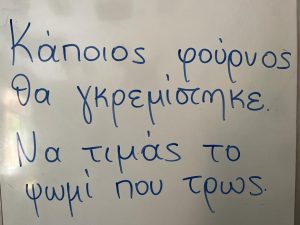 Κάποιος φούρνος
θα γκρεμίστηκε.
Να τιμάς το
ψωμί που τρως.